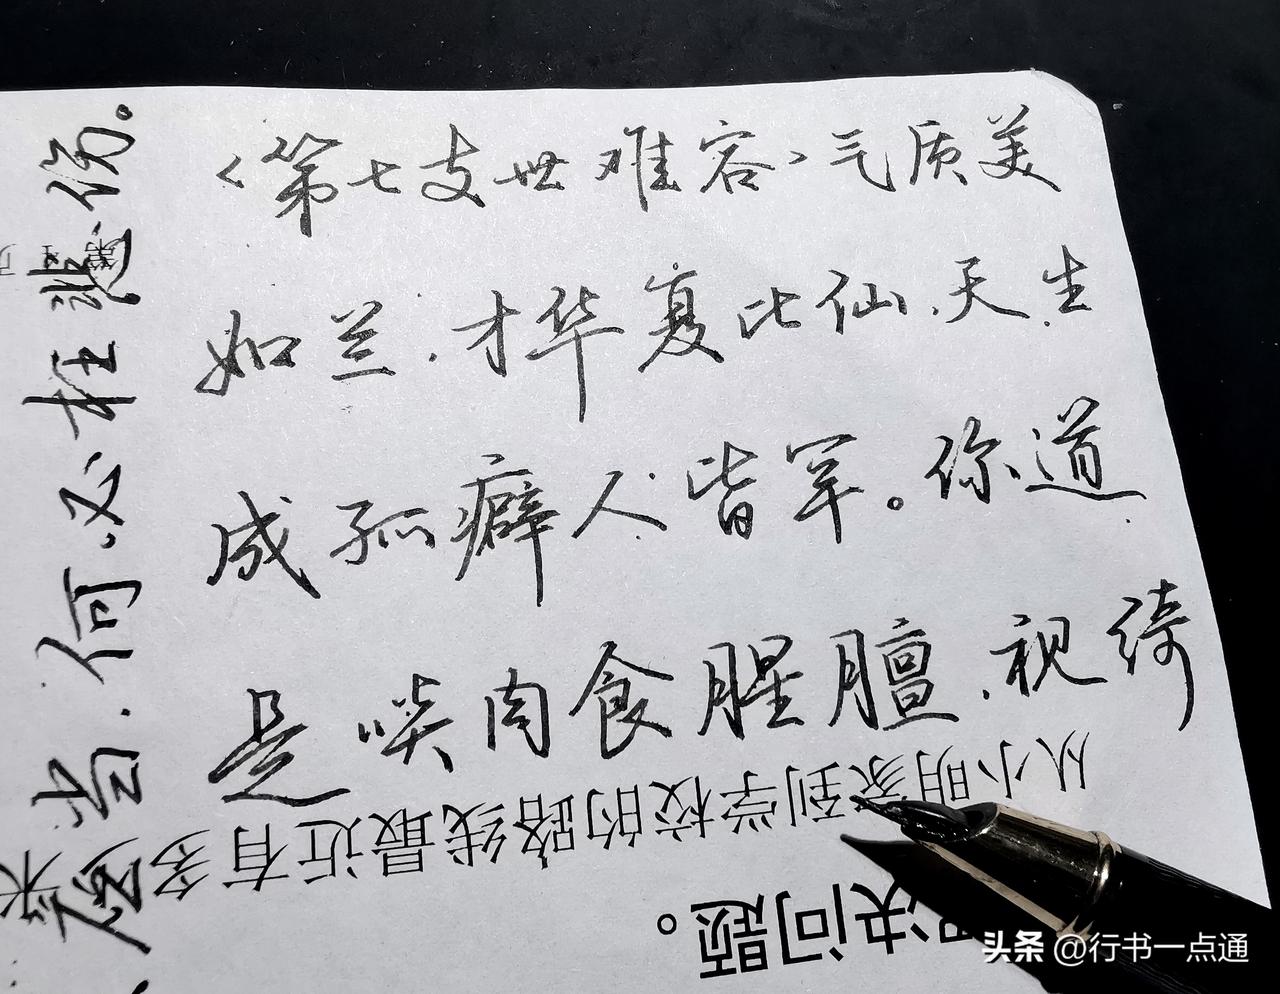 〈第七支世难容〉气质美
如兰.才华复比仙.天生
成孤癖人皆罕。你道
是啖肉食腥膻.视绮
当.何必枉悲伤。
从小明家到学校的路线最近有多
决问题。
头条 @行书一点通